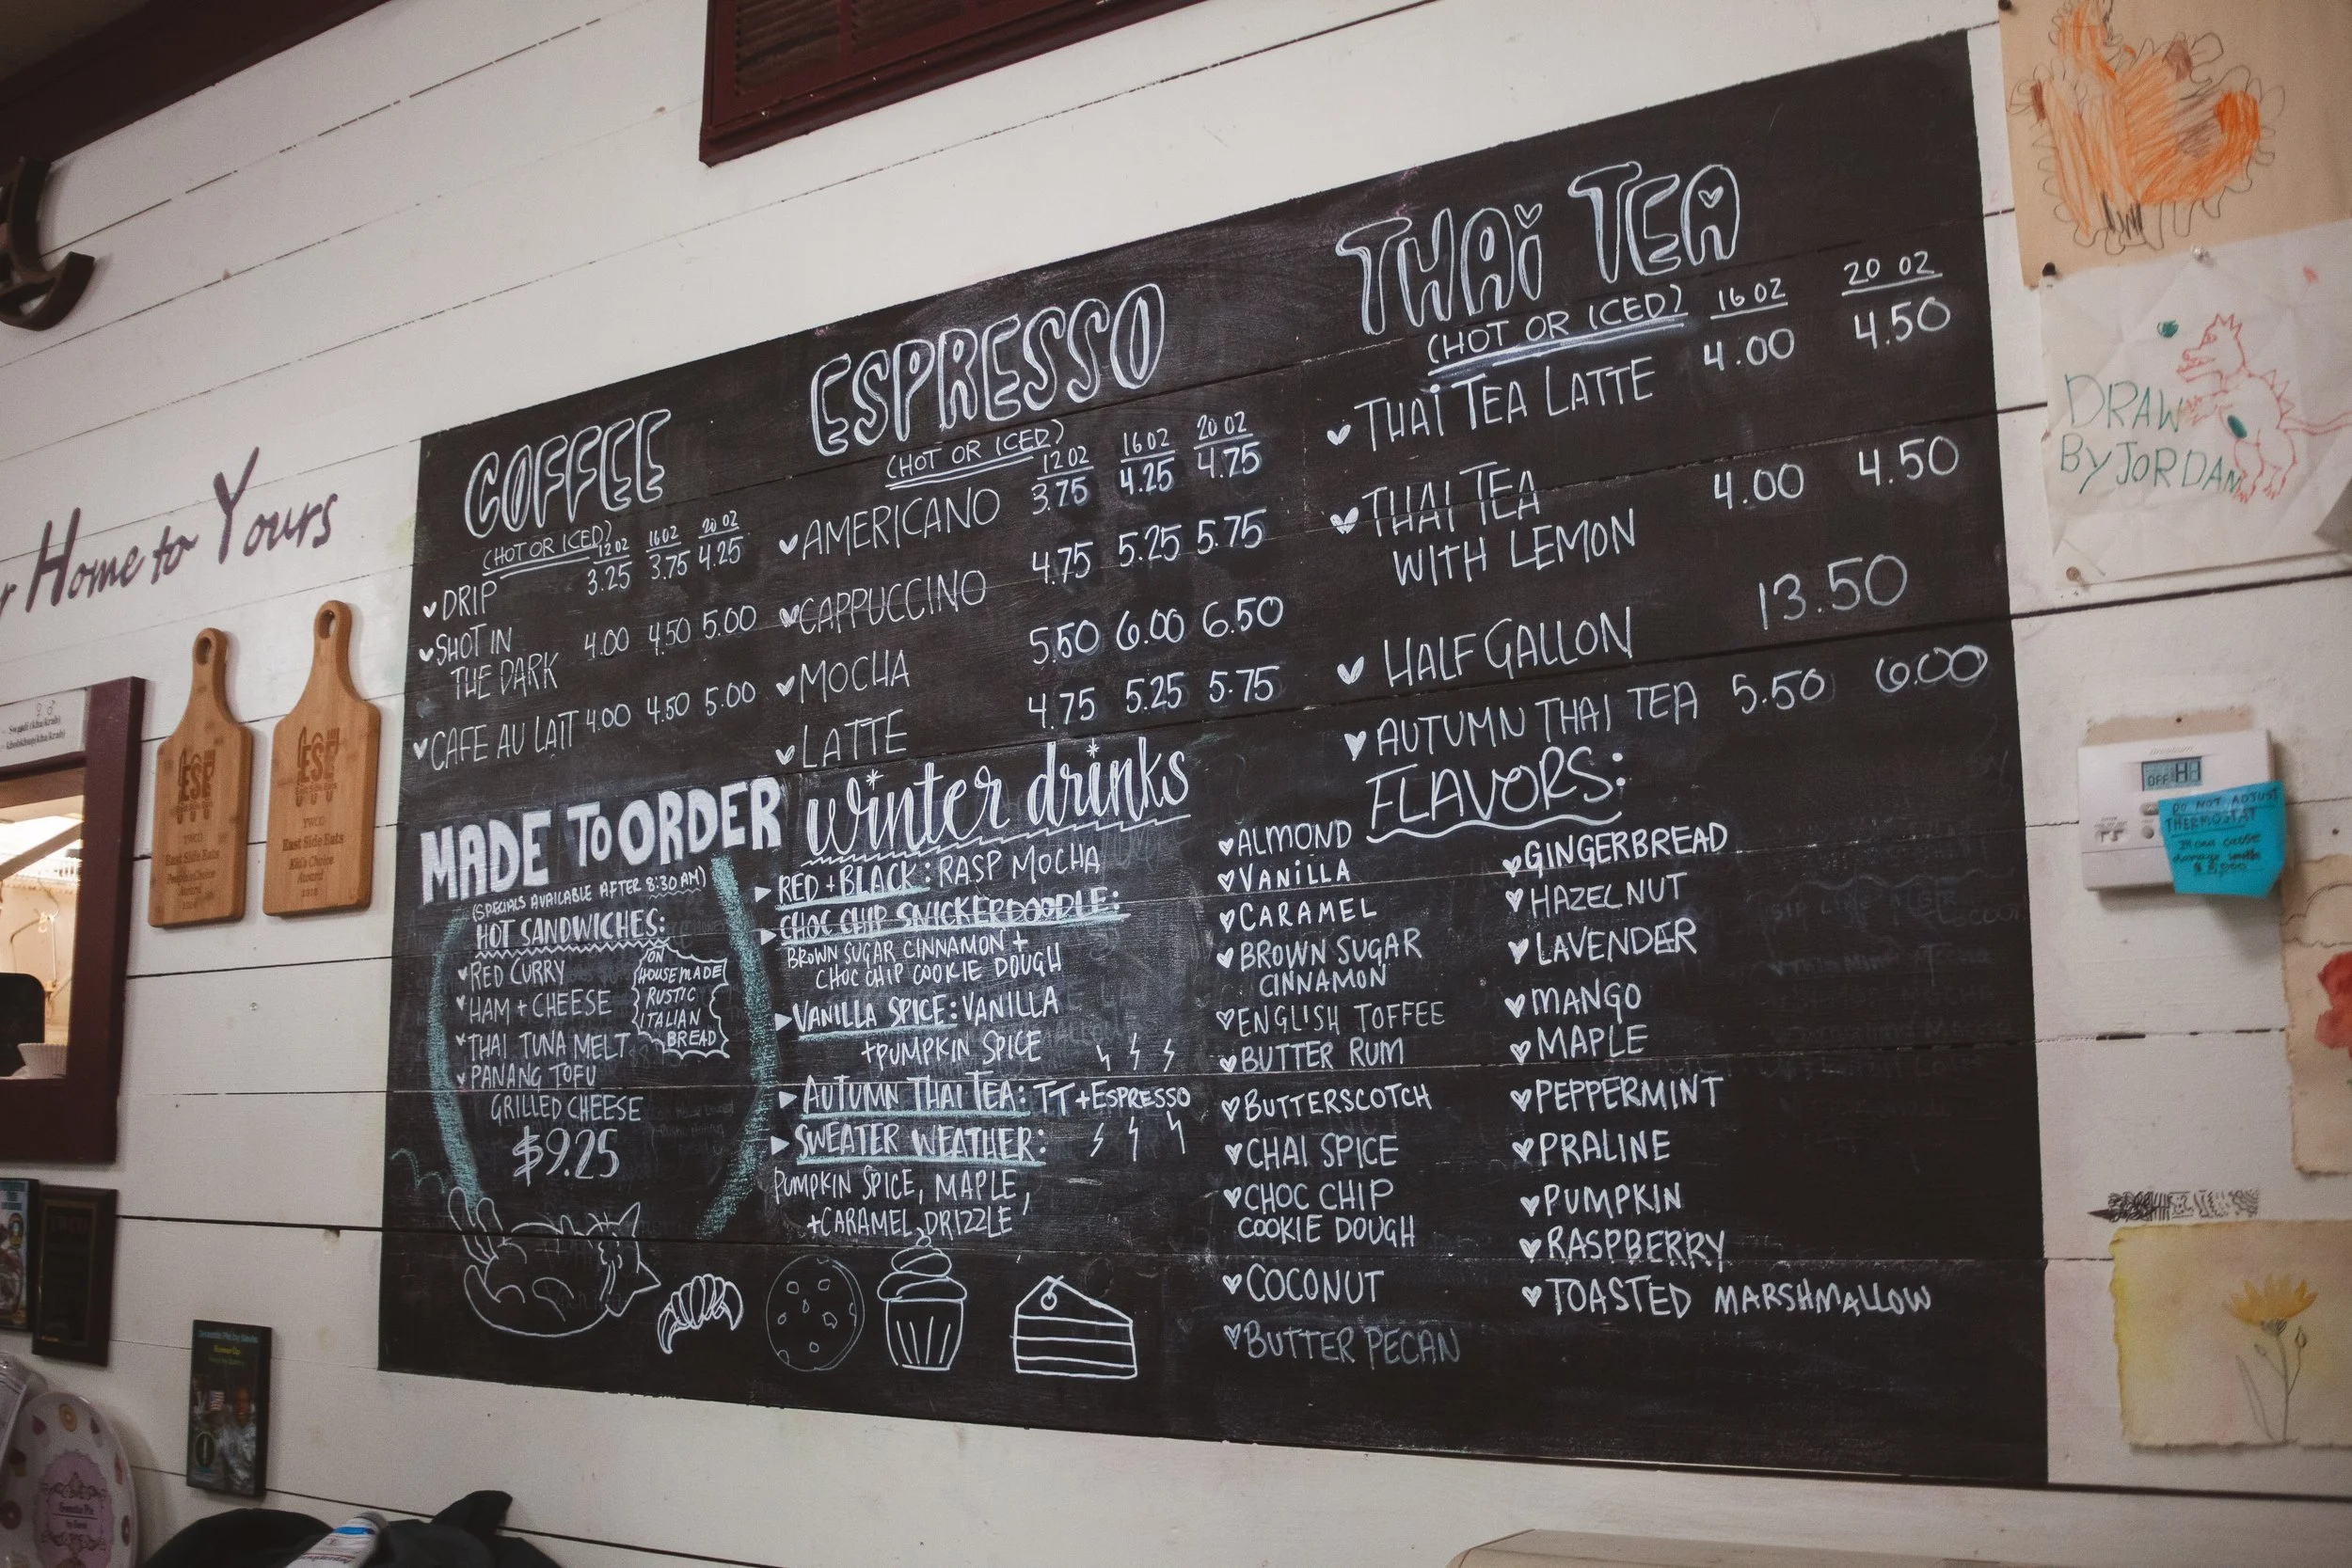 Home to Yours
COFFEE
(HOT OR ICED) 12 OZ 16 OZ 20 OZ
DRIP 3.25 3.75 4.25
SHOT IN
THE DARK 4.00 4.50 5.00
CAFE AU LAIT 4.00 4.50 5.00
ESPRESSO
(HOT OR ICED) 12 OZ 16 OZ 20 OZ
AMERICANO 3.75 4.25 4.75
CAPPUCCINO 4.75 5.25 5.75
MOCHA 5.50 6.00 6.50
LATTE 4.75 5.25 5.75
THAi TEA
(HOT OR ICED) 16 OZ 20 OZ
THAi TEA LATTE 4.00 4.50
THAI TEA
WITH LEMON 4.00 4.50
HALF GALLON 13.50
AUTUMN THAI TEA 5.50 6.00
MADE TO ORDER
(SPECIALS AVAILABLE AFTER 8:30 AM)
HOT SANDWICHES:
RED CURRY
HAM + CHEESE
THAI TUNA MELT
PANANG TOFU
GRILLED CHEESE
$9.25
ON
HOUSEMADE
RUSTIC
ITALIAN
BREAD
winter drinks
RED + BLACK: RASP MOCHA
CHOC CHIP SNICKERDOODLE:
BROWN SUGAR CINNAMON +
CHOC CHIP COOKIE DOUGH
VANILLA SPICE: VANILLA
+ PUMPKIN SPICE
AUTUMN THAI TEA: TT + ESPRESSO
SWEATER WEATHER:
PUMPKIN SPICE, MAPLE,
+ CARAMEL DRIZZLE
FLAVORS:
ALMOND
VANiLLA
CARAMEL
BROWN SUGAR
CINNAMON
ENGLISH TOFFEE
BUTTER RUM
BUTTERSCOTCH
CHAI SPICE
CHOC CHIP
COOKIE DOUGH
COCONUT
BUTTER PECAN
GINGERBREAD
HAZELNUT
LAVENDER
MANGO
MAPLE
PEPPERMINT
PRALINE
PUMPKIN
RASPBERRY
TOASTED MARSHMALLOW
ESE
YWCO
East Side Eats
People's Choice
Award
ESE
YWCO
East Side Eats
Kid's Choice
Award
2018
DRAW
BY JORDAN
OFF H
DO NOT ADJUST
THERMOSTAT